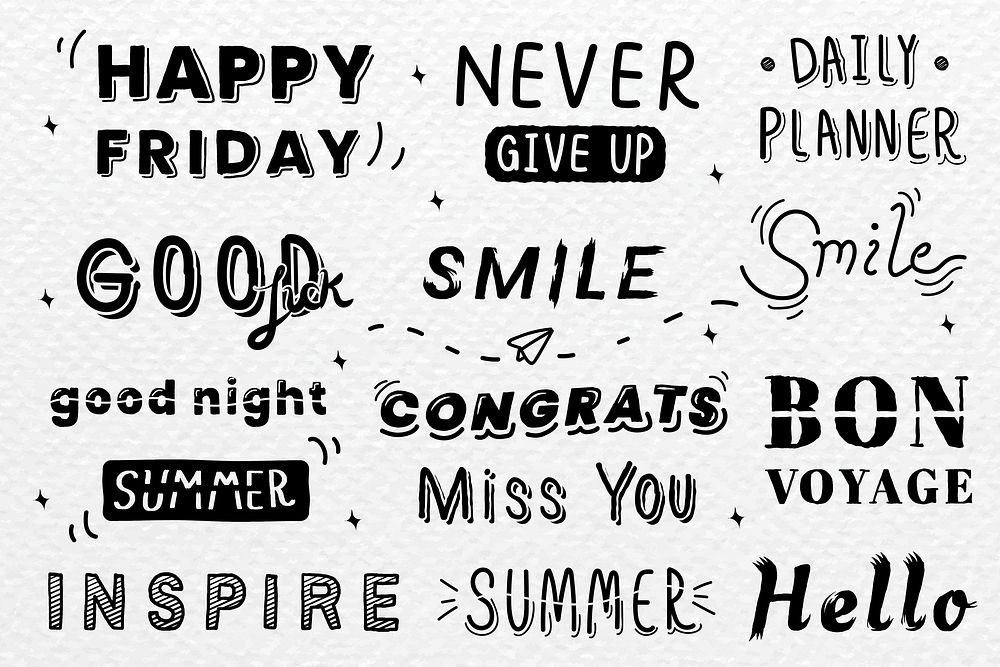 HAPPY
FRIDAY
NEVER
GIVE UP
DAILY
PLANNER
GOOD
luck
SMILE
Smile
good night
CONGRATS
BON
VOYAGE
SUMMER
Miss You
INSPIRE
SUMMER
Hello